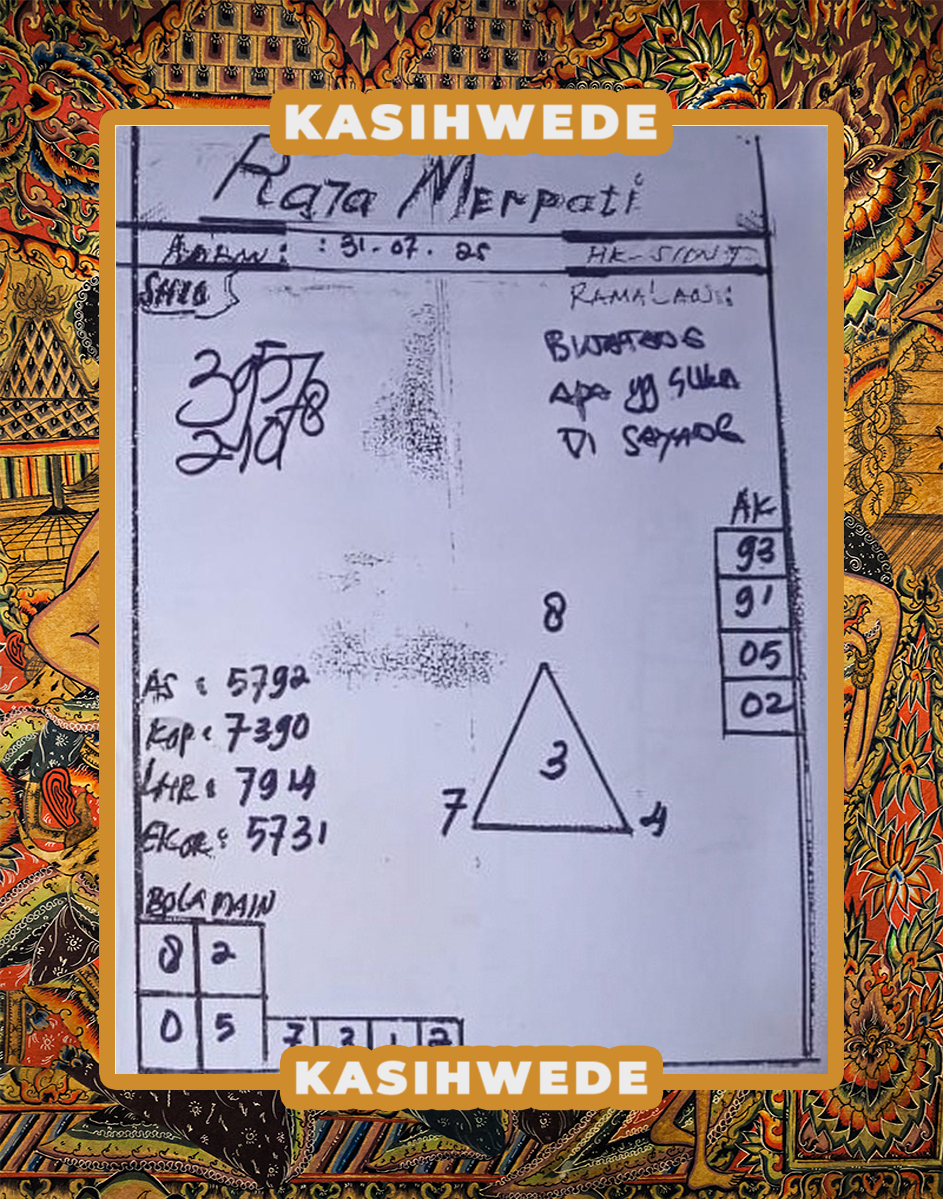 KASIHWEDE
Raja Merpati
: 31.07.25
HK-SIDNEY
SHIO
RAMALAN:
BINATANG
APA yg SUKA
DI SAYANG
AK
93
91
05
02
8
3
7 4
AS : 5792
KOP : 7390
LHR : 7914
EKOR : 5731
BOLA MAIN
8 2
0 5
7 3 1 2
KASIHWEDE